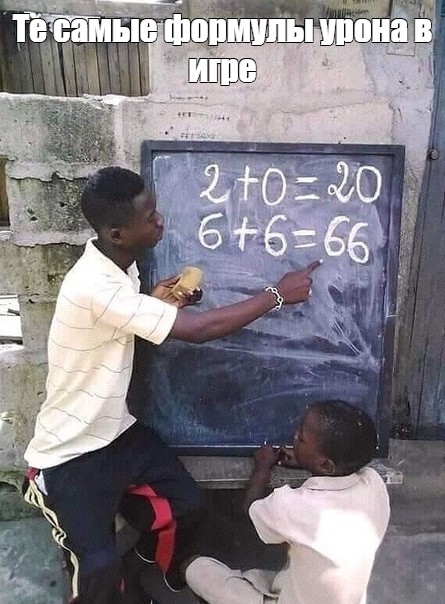 Те самые формулы урона в
игре
2+0=20
6+6=66